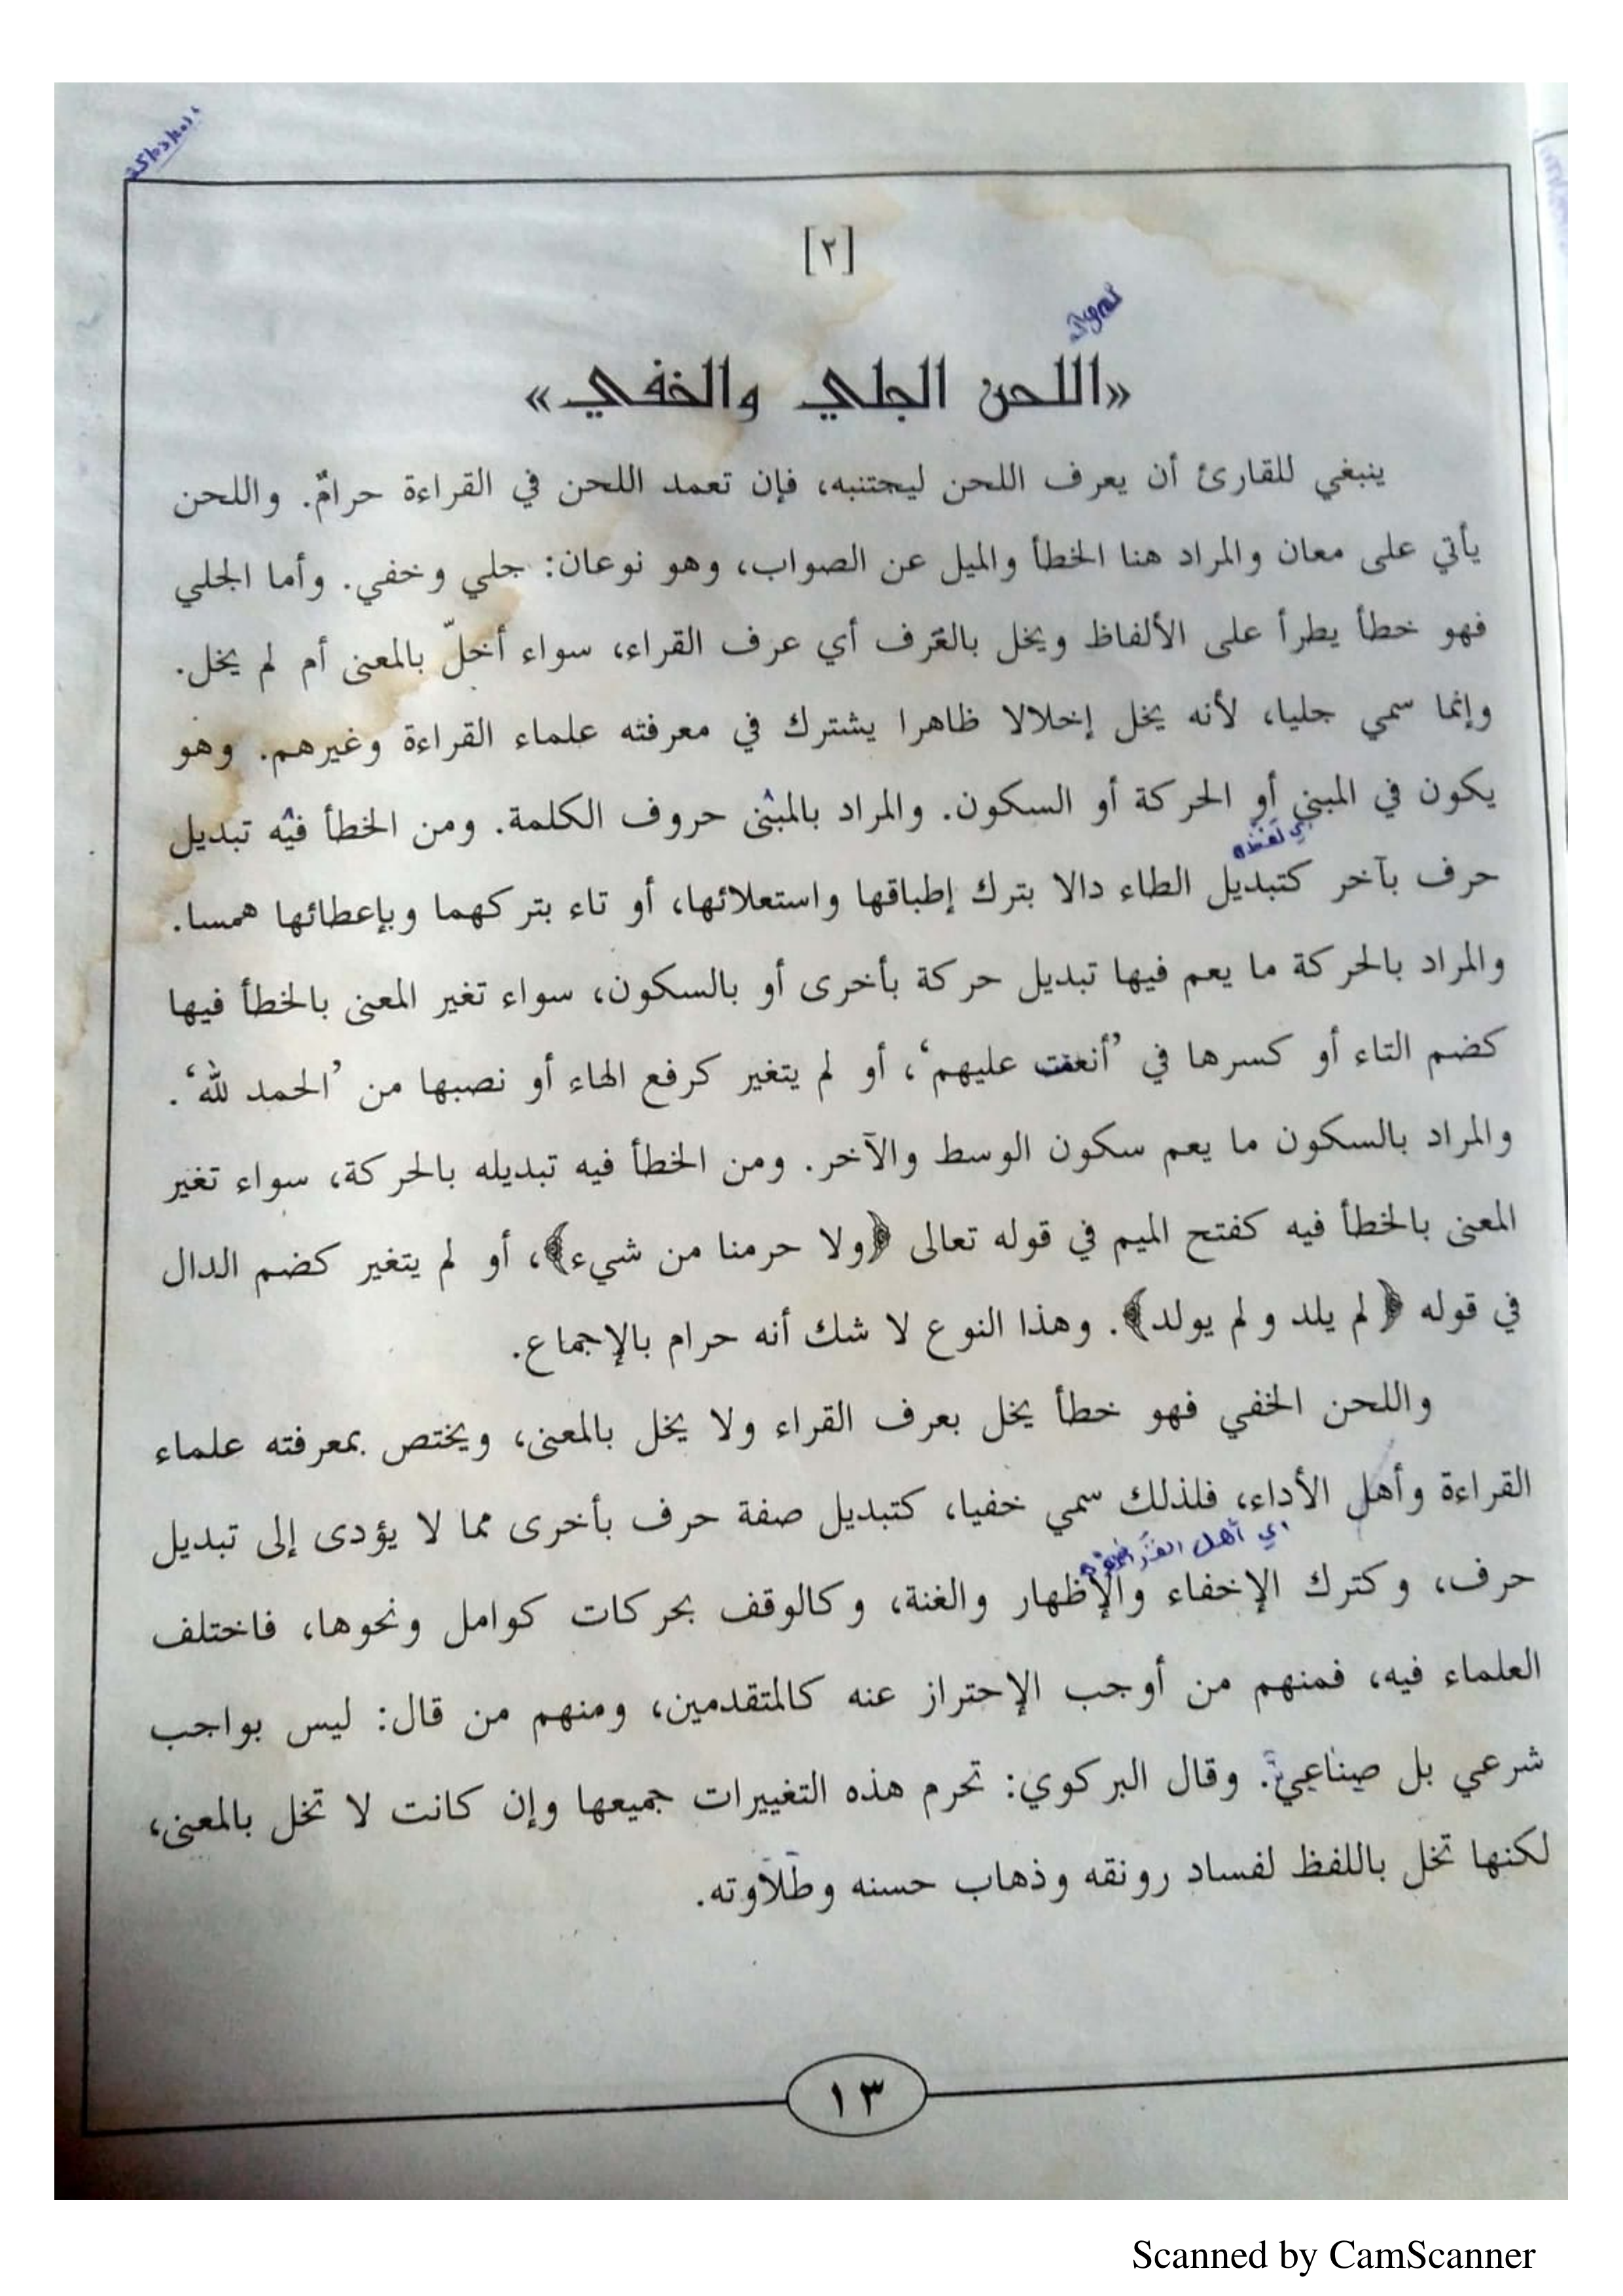 [٢]
«اللحن الجلي والخفي»
ينبغي للقارئ أن يعرف اللحن ليجتنبه، فإن تعمد اللحن في القراءة حرامٌ. واللحن
يأتي على معان والمراد هنا الخطأ والميل عن الصواب، وهو نوعان: جلي وخفي. وأما الجلي
فهو خطأ يطرأ على الألفاظ ويخل بالعُرف أي عرف القراء، سواء أخلّ بالمعنى أم لم يخل.
وإنما سمي جليا، لأنه يخل إخلالا ظاهرا يشترك في معرفته علماء القراءة وغيرهم. وهو
يكون في المبنى أو الحركة أو السكون. والمراد بالمبنى حروف الكلمة. ومن الخطأ فيه تبديل
حرف بآخر كتبديل الطاء دالا بترك إطباقها واستعلائها، أو تاء بتركهما وبإعطائها همسا.
والمراد بالحركة ما يعم فيها تبديل حركة بأخرى أو بالسكون، سواء تغير المعنى بالخطأ فيها
كضم التاء أو كسرها في ’أنعمت عليهم‘، أو لم يتغير كرفع الهاء أو نصبها من ’الحمد لله‘.
والمراد بالسكون ما يعم سكون الوسط والآخر. ومن الخطأ فيه تبديله بالحركة، سواء تغير
المعنى بالخطأ فيه كفتح الميم في قوله تعالى ﴿ولا حرمنا من شيء﴾، أو لم يتغير كضم الدال
في قوله ﴿لم يلد ولم يولد﴾. وهذا النوع لا شك أنه حرام بالإجماع.
واللحن الخفي فهو خطأ يخل بعرف القراء ولا يخل بالمعنى، ويختص بمعرفته علماء
القراءة وأهل الأداء، فلذلك سمي خفيا، كتبديل صفة حرف بأخرى مما لا يؤدى إلى تبديل
أي أهل
حرف، وكترك الإخفاء والإظهار والغنة، وكالوقف بحركات كوامل ونحوها، فاختلف
العلماء فيه، فمنهم من أوجب الإحتراز عنه كالمتقدمين، ومنهم من قال: ليس بواجب
شرعي بل صناعيّ. وقال البركوي: تحرم هذه التغييرات جميعها وإن كانت لا تخل بالمعنى،
لكنها تخل باللفظ لفساد رونقه وذهاب حسنه وطلاوته.
١٣
Scanned by CamScanner